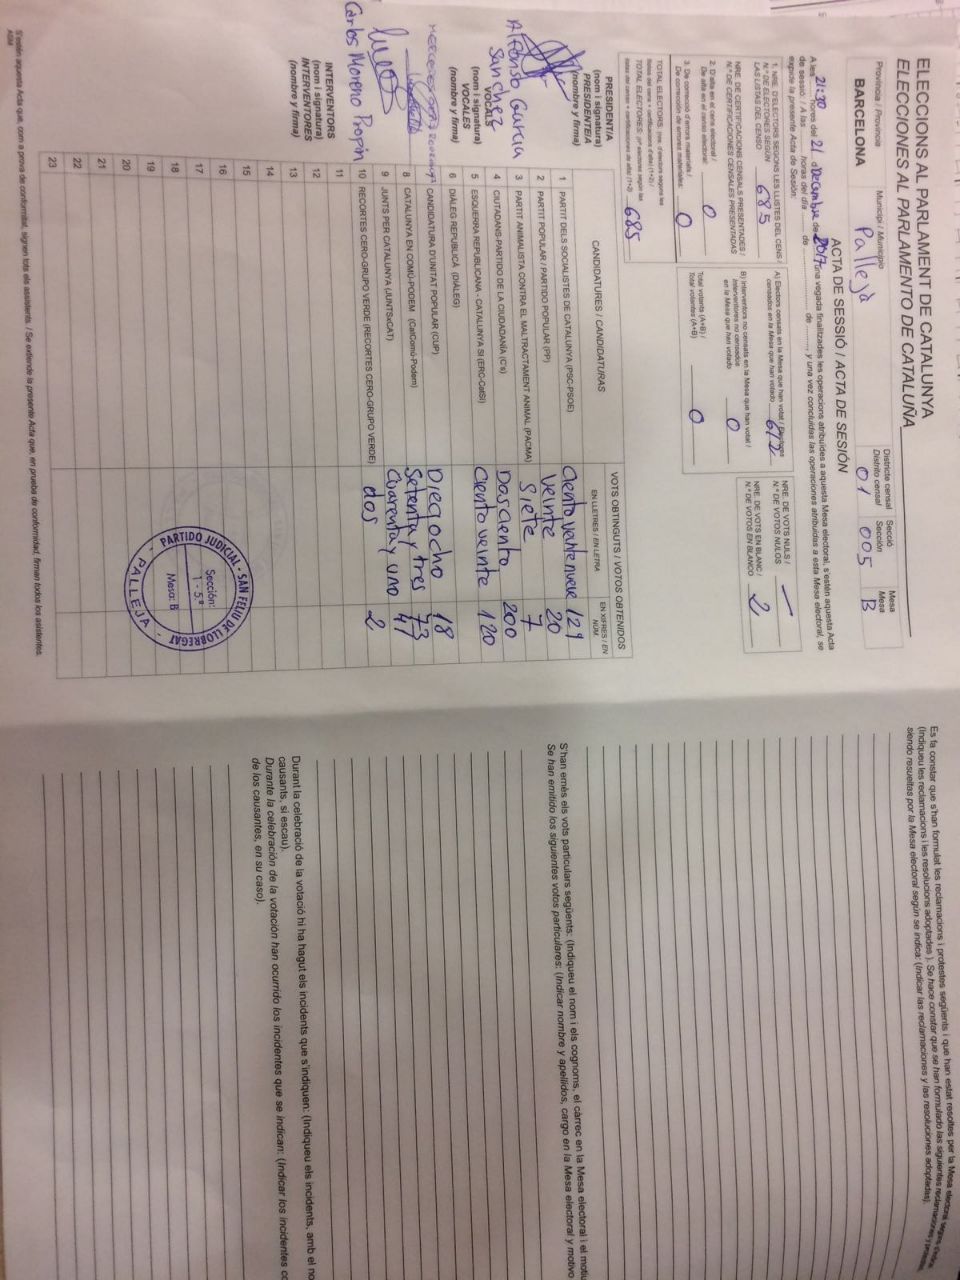 ELECCIONS AL PARLAMENT DE CATALUNYA
ELECCIONES AL PARLAMENTO DE CATALUÑA
Província / Provincia
Municipi / Municipio
Districte censal
Distrito censal
Secció
Sección
Mesa
Mesa
BARCELONA
Pallejà
01
005
B
ACTA DE SESSIÓ / ACTA DE SESIÓN
A les 21:30 hores del 21 de Decembre de 2017, una vegada finalitzades les operacions atribuïdes a aquesta Mesa electoral, s'estén aquesta Acta
de sessió. / A las ........ horas del día ........ de ........ de ........, y una vez concluidas las operaciones atribuidas a esta Mesa electoral, se
expide la presente Acta de Sesión.
1. NRE. D'ELECTORS SEGONS LES LLISTES DEL CENS /
N.º DE ELECTORES SEGÚN
LAS LISTAS DEL CENSO
685
NRE. DE CERTIFICACIONS CENSALS PRESENTADES /
N.º DE CERTIFICACIONES CENSALES PRESENTADAS
2. D'alta en el cens electoral /
De alta en el censo electoral:
0
3. De correcció d'errors materials /
De corrección de errores materiales:
0
TOTAL ELECTORS:
TOTAL ELECTORES:
685
A) Electors censats en la Mesa que han votat / Electores
censados en la Mesa que han votado
672
B) Interventors no censats en la Mesa que han votat /
Interventores no censados
en la Mesa que han votado
0
Total votants (A+B) /
Total votantes (A+B)
0
NRE. DE VOTS NULS /
N.º DE VOTOS NULOS
—
NRE. DE VOTS EN BLANC /
N.º DE VOTOS EN BLANCO
2
CANDIDATURES / CANDIDATURAS
VOTS OBTINGUTS / VOTOS OBTENIDOS
EN LLETRES / EN LETRA
EN XIFRES / EN NÚM.
1 PARTIT DELS SOCIALISTES DE CATALUNYA (PSC-PSOE) Ciento veintenueve 129
2 PARTIT POPULAR / PARTIDO POPULAR (PP) Veinte 20
3 PARTIT ANIMALISTA CONTRA EL MALTRACTAMENT ANIMAL (PACMA) Siete 7
4 CIUTADANS-PARTIDO DE LA CIUDADANÍA (C's) Dosciento 200
5 ESQUERRA REPUBLICANA - CATALUNYA SÍ (ERC-CatSí) Ciento veinte 120
6 DIÀLEG REPUBLICÀ (DIÀLEG)
7 CANDIDATURA D'UNITAT POPULAR (CUP) Dieciocho 18
8 CATALUNYA EN COMÚ-PODEM (CatComú-Podem) Setenta y tres 73
9 JUNTS PER CATALUNYA (JUNTSxCAT) Cuarenta y uno 41
10 RECORTES CERO-GRUPO VERDE (RECORTES CERO-GRUPO VERDE) dos 2
11
12
13
14
15
16
17
18
19
20
21
22
23
PRESIDENT/A
(nom i signatura)
PRESIDENTE/A
(nombre y firma)
Alfonso Garcia
Sanchez
VOCALS
(nom i signatura)
VOCALES
(nombre y firma)
Carlos Moreno
INTERVENTORS
(nom i signatura)
INTERVENTORES
(nombre y firma)
PARTIDO JUDICIAL - SAN FELIU DE LLOBREGAT
- PALLEJA -
Sección:
1 - 5.ª
Mesa: B
S'estén aquesta Acta que, com a prova de conformitat, signen tots els assistents. / Se extiende la presente Acta que, en prueba de conformidad, firman todos los asistentes.
Es fa constar que s'han formulat les reclamacions i protestes següents i que han estat resoltes per la Mesa electoral
(Indiqueu les reclamacions i les resolucions adoptades). Se hace constar que se han formulado las siguientes reclamaciones y protestas
siendo resueltas por la Mesa electoral según se indica: (Indicar las reclamaciones y las resoluciones adoptadas).
S'han emès els vots particulars següents: (Indiqueu el nom i els cognoms, el càrrec en la Mesa electoral i el motiu
Se han emitido los siguientes votos particulares: (Indicar nombre y apellidos, cargo en la Mesa electoral y motivo
Durant la celebració de la votació hi ha hagut els incidents que s'indiquen: (Indiqueu els incidents, amb el no
causants, si escau).
Durante la celebración de la votación han ocurrido los incidentes que se indican: (Indicar los incidentes co
de los causantes, en su caso).